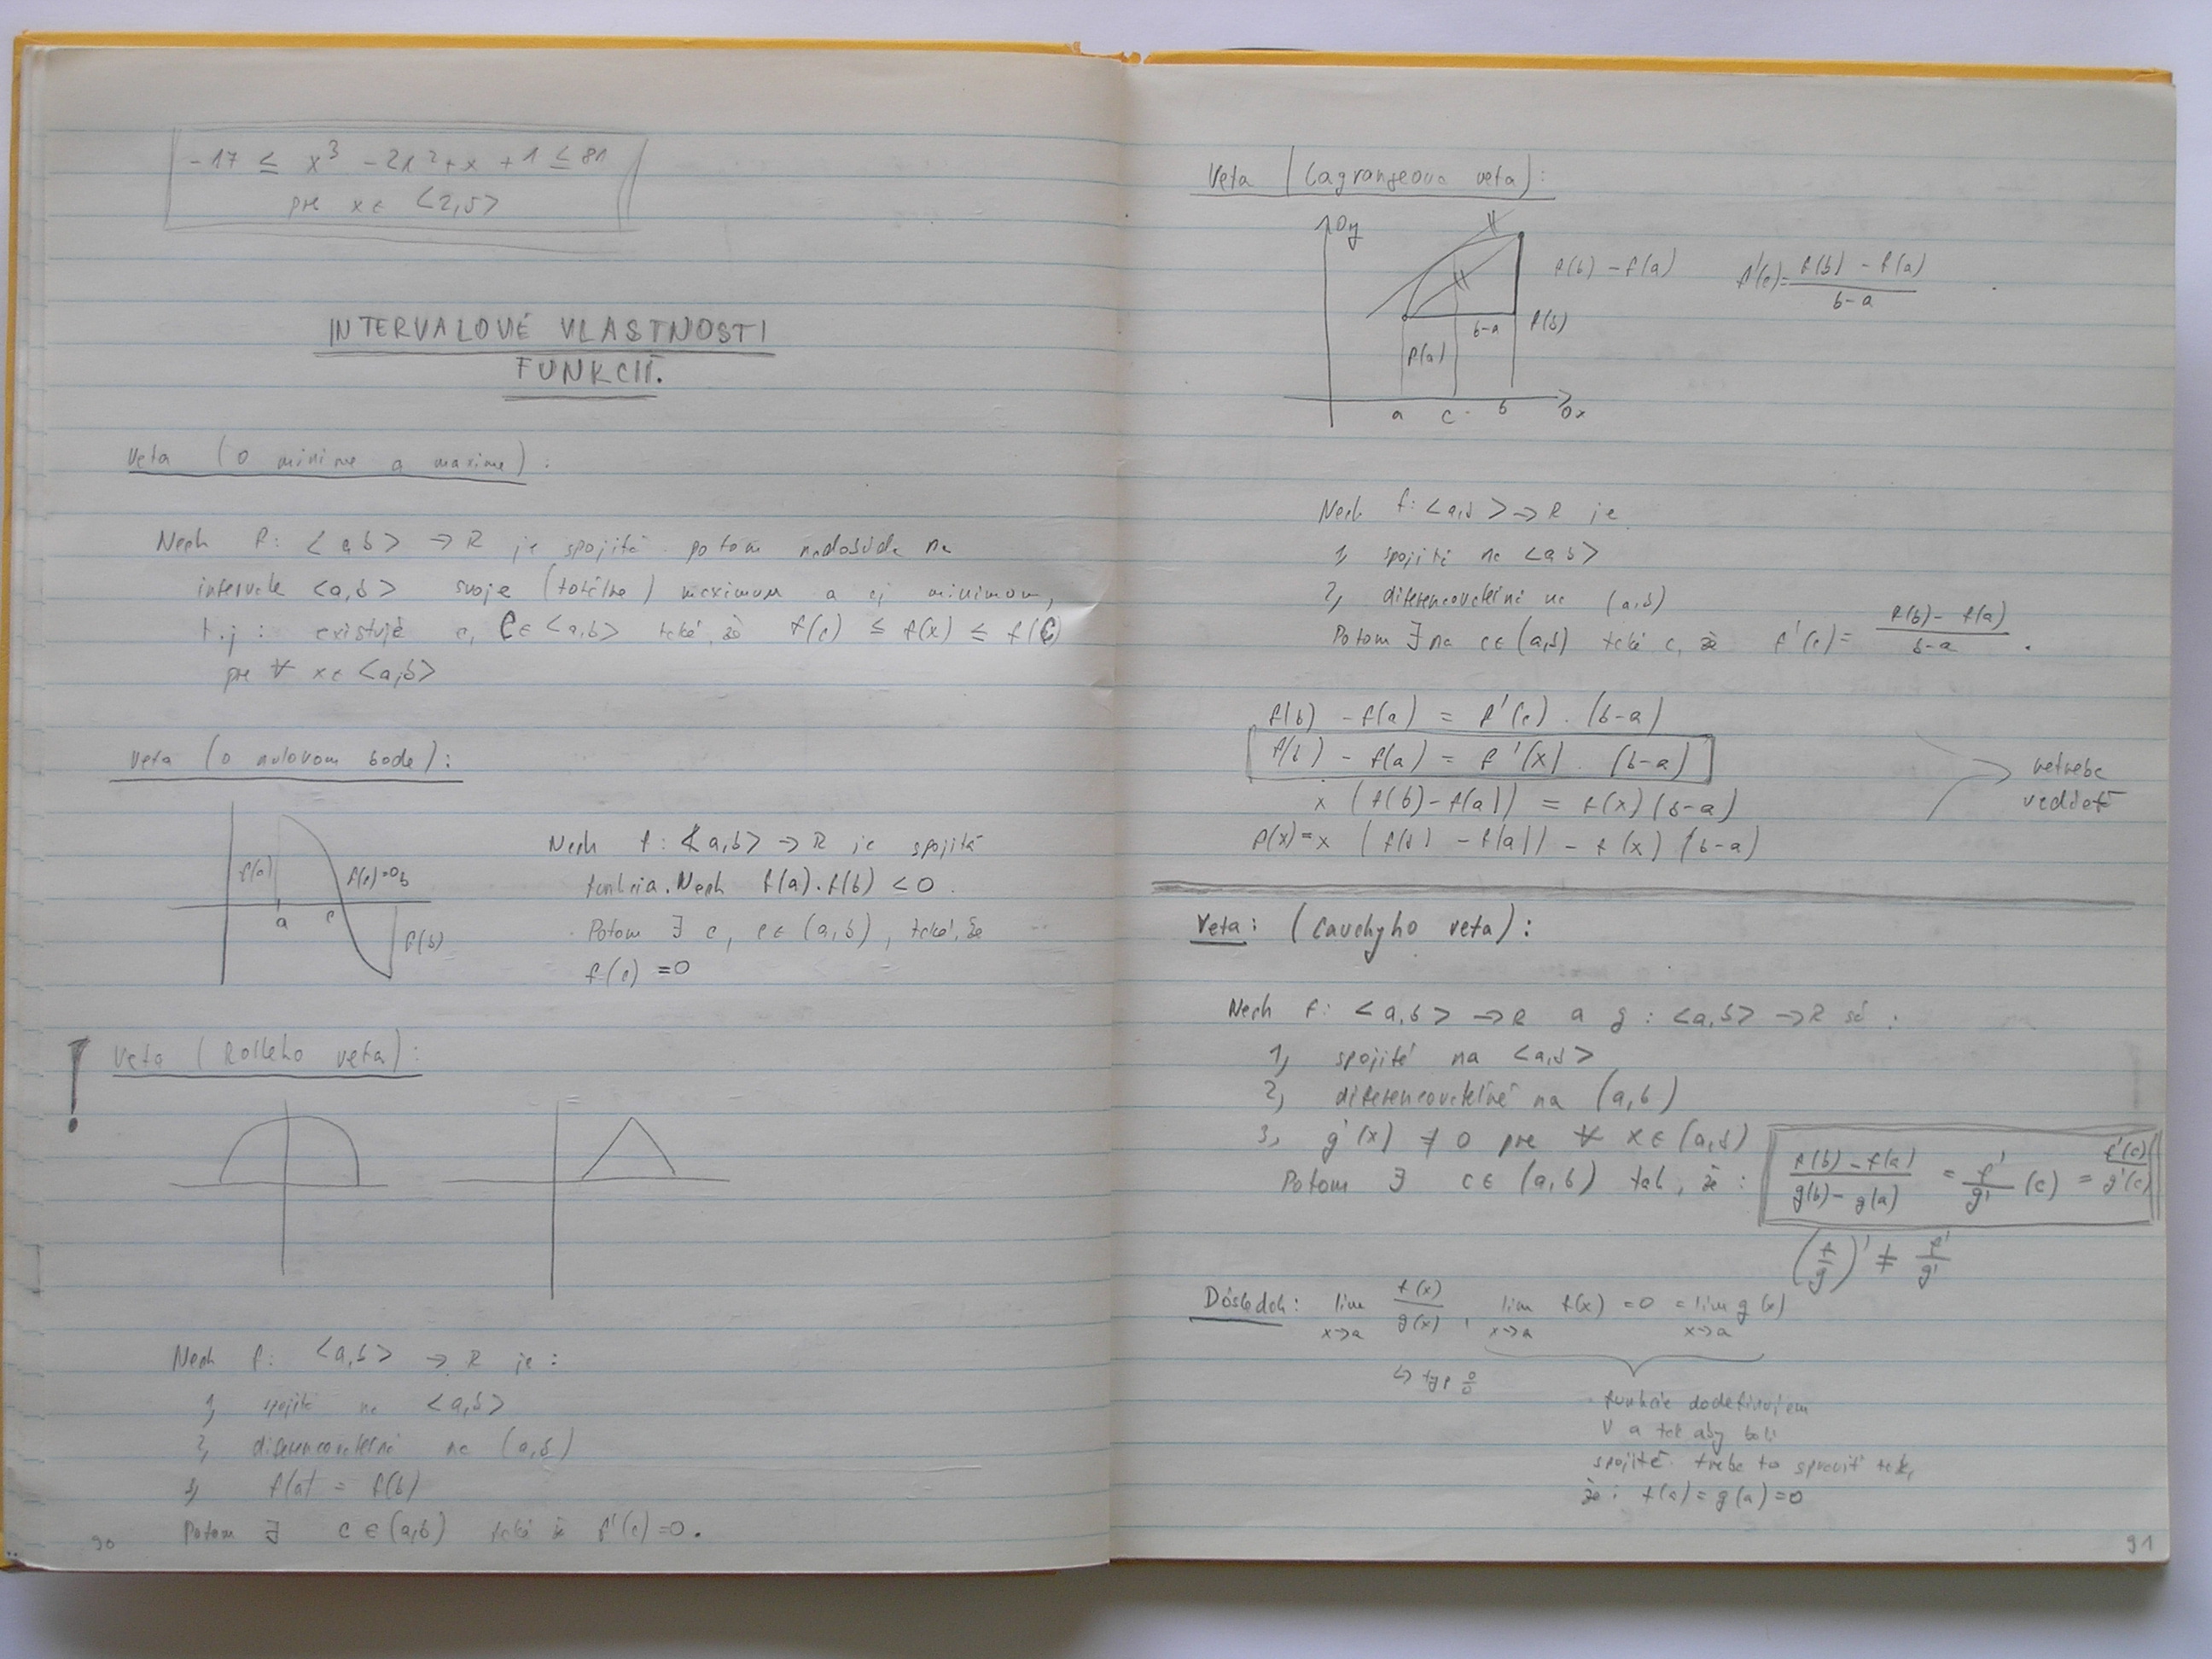 -17 ≤ x³ - 2x² + x + 1 ≤ 81
pre x ∈ <2,5>
INTERVALOVÉ VLASTNOSTI
FUNKCIÍ.
Veta (o minime a maxime) :
Nech f: <a,b> → R je spojitá potom nadobúda na
intervale <a,b> svoje (totálne) maximum a aj minimum,
t.j : existujú c, C ∈ <a,b> také, že f(c) ≤ f(x) ≤ f(C)
pre ∀ x ∈ <a,b>
Veta (o nulovom bode) :
f(a)
f(c)=0
b
a
c
f(b)
Nech f: <a,b> → R je spojitá
funkcia. Nech f(a).f(b) < 0.
Potom ∃ c, c ∈ (a,b), také, že
f(c) = 0
! Veta (Rolleho veta) :
Nech f: <a,b> → R je :
1, spojitá na <a,b>
2, diferencovateľná na (a,b)
3, f(a) = f(b)
Potom ∃ c ∈ (a,b) také že f'(c) = 0.
90
Veta (Lagrangeova veta) :
0y
f(b) - f(a)
f'(c) = (f(b) - f(a))/(b-a)
b-a
f(b)
f(a)
a c b 0x
Nech f: <a,b> → R je
1, spojitá na <a,b>
2, diferencovateľná na (a,b)
Potom ∃ na c ∈ (a,b) také c, že f'(c) = (f(b) - f(a))/(b-a) .
f(b) - f(a) = f'(c) . (b-a)
f(b) - f(a) = f'(x) . (b-a)
x (f(b) - f(a)) = f(x) (b-a)
f(x) = x (f(b) - f(a)) - f(x) (b-a)
netreba
vedieť
Veta: (Cauchyho veta) :
Nech f: <a,b> → R a g : <a,b> → R sú :
1, spojité na <a,b>
2, diferencovateľné na (a,b)
3, g'(x) ≠ 0 pre ∀ x ∈ (a,b)
Potom ∃ c ∈ (a,b) tak, že : (f(b) - f(a))/(g(b) - g(a)) = f'/g' (c) = f'(c)/g'(c)
(f/g)' ≠ f'/g'
Dôsledok : lim x→a f(x)/g(x) , lim x→a f(x) = 0 = lim x→a g(x)
↳ typ 0/0
funkcie dodefinujem
v a tak aby boli
spojité. treba to spraviť tak,
že : f(a) = g(a) = 0
91